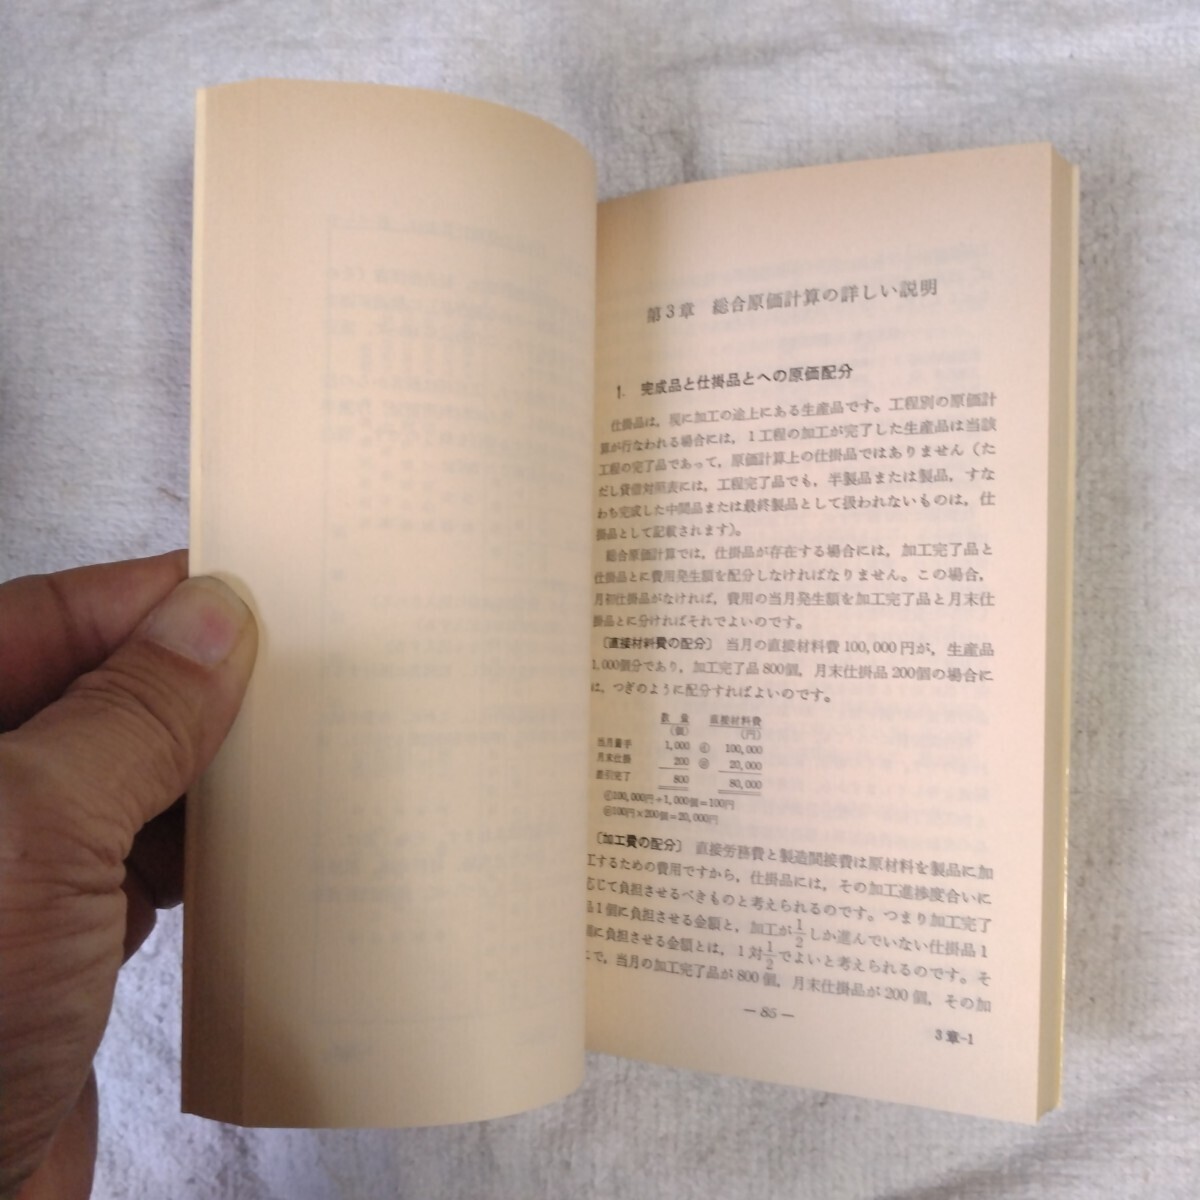 第3章 総合原価計算の詳しい説明
1. 完成品と仕掛品とへの原価配分
仕掛品は，現に加工の途上にある生産品です。工程別の原価計
算が行なわれる場合には，1工程の加工が完了した生産品は当該
工程の完了品であって，原価計算上の仕掛品ではありません（た
だし貸借対照表には，工程完了品でも，半製品または製品，すな
わち完成した中間品または最終製品として扱われないものは，仕
掛品として記載されます）。
総合原価計算では，仕掛品が存在する場合には，加工完了品と
仕掛品とに費用発生額を配分しなければなりません。この場合，
月初仕掛品がなければ，費用の当月発生額を加工完了品と月末仕
掛品とに分ければそれでよいのです。
〔直接材料費の配分〕 当月の直接材料費100,000円が，生産品
1,000個分であり，加工完了品800個，月末仕掛品200個の場合に
は，つぎのように配分すればよいのです。
数量 直接材料費
(個) (円)
当月着手 1,000 ㋑ 100,000
月末仕掛 200 ㋺ 20,000
差引完了 800 80,000
㋑100,000円÷1,000個=100円
㋺100円×200個=20,000円
〔加工費の配分〕 直接労務費と製造間接費は原材料を製品に加
工するための費用ですから，仕掛品には，その加工進捗度合いに
応じて負担させるべきものと考えられるのです。つまり加工完了
品1個に負担させる金額と，加工が1/2しか進んでいない仕掛品1
個に負担させる金額とは，1対1/2でよいと考えられるのです。そ
こで，当月の加工完了品が800個，月末仕掛品が200個，その加
— 85 —
3章-1